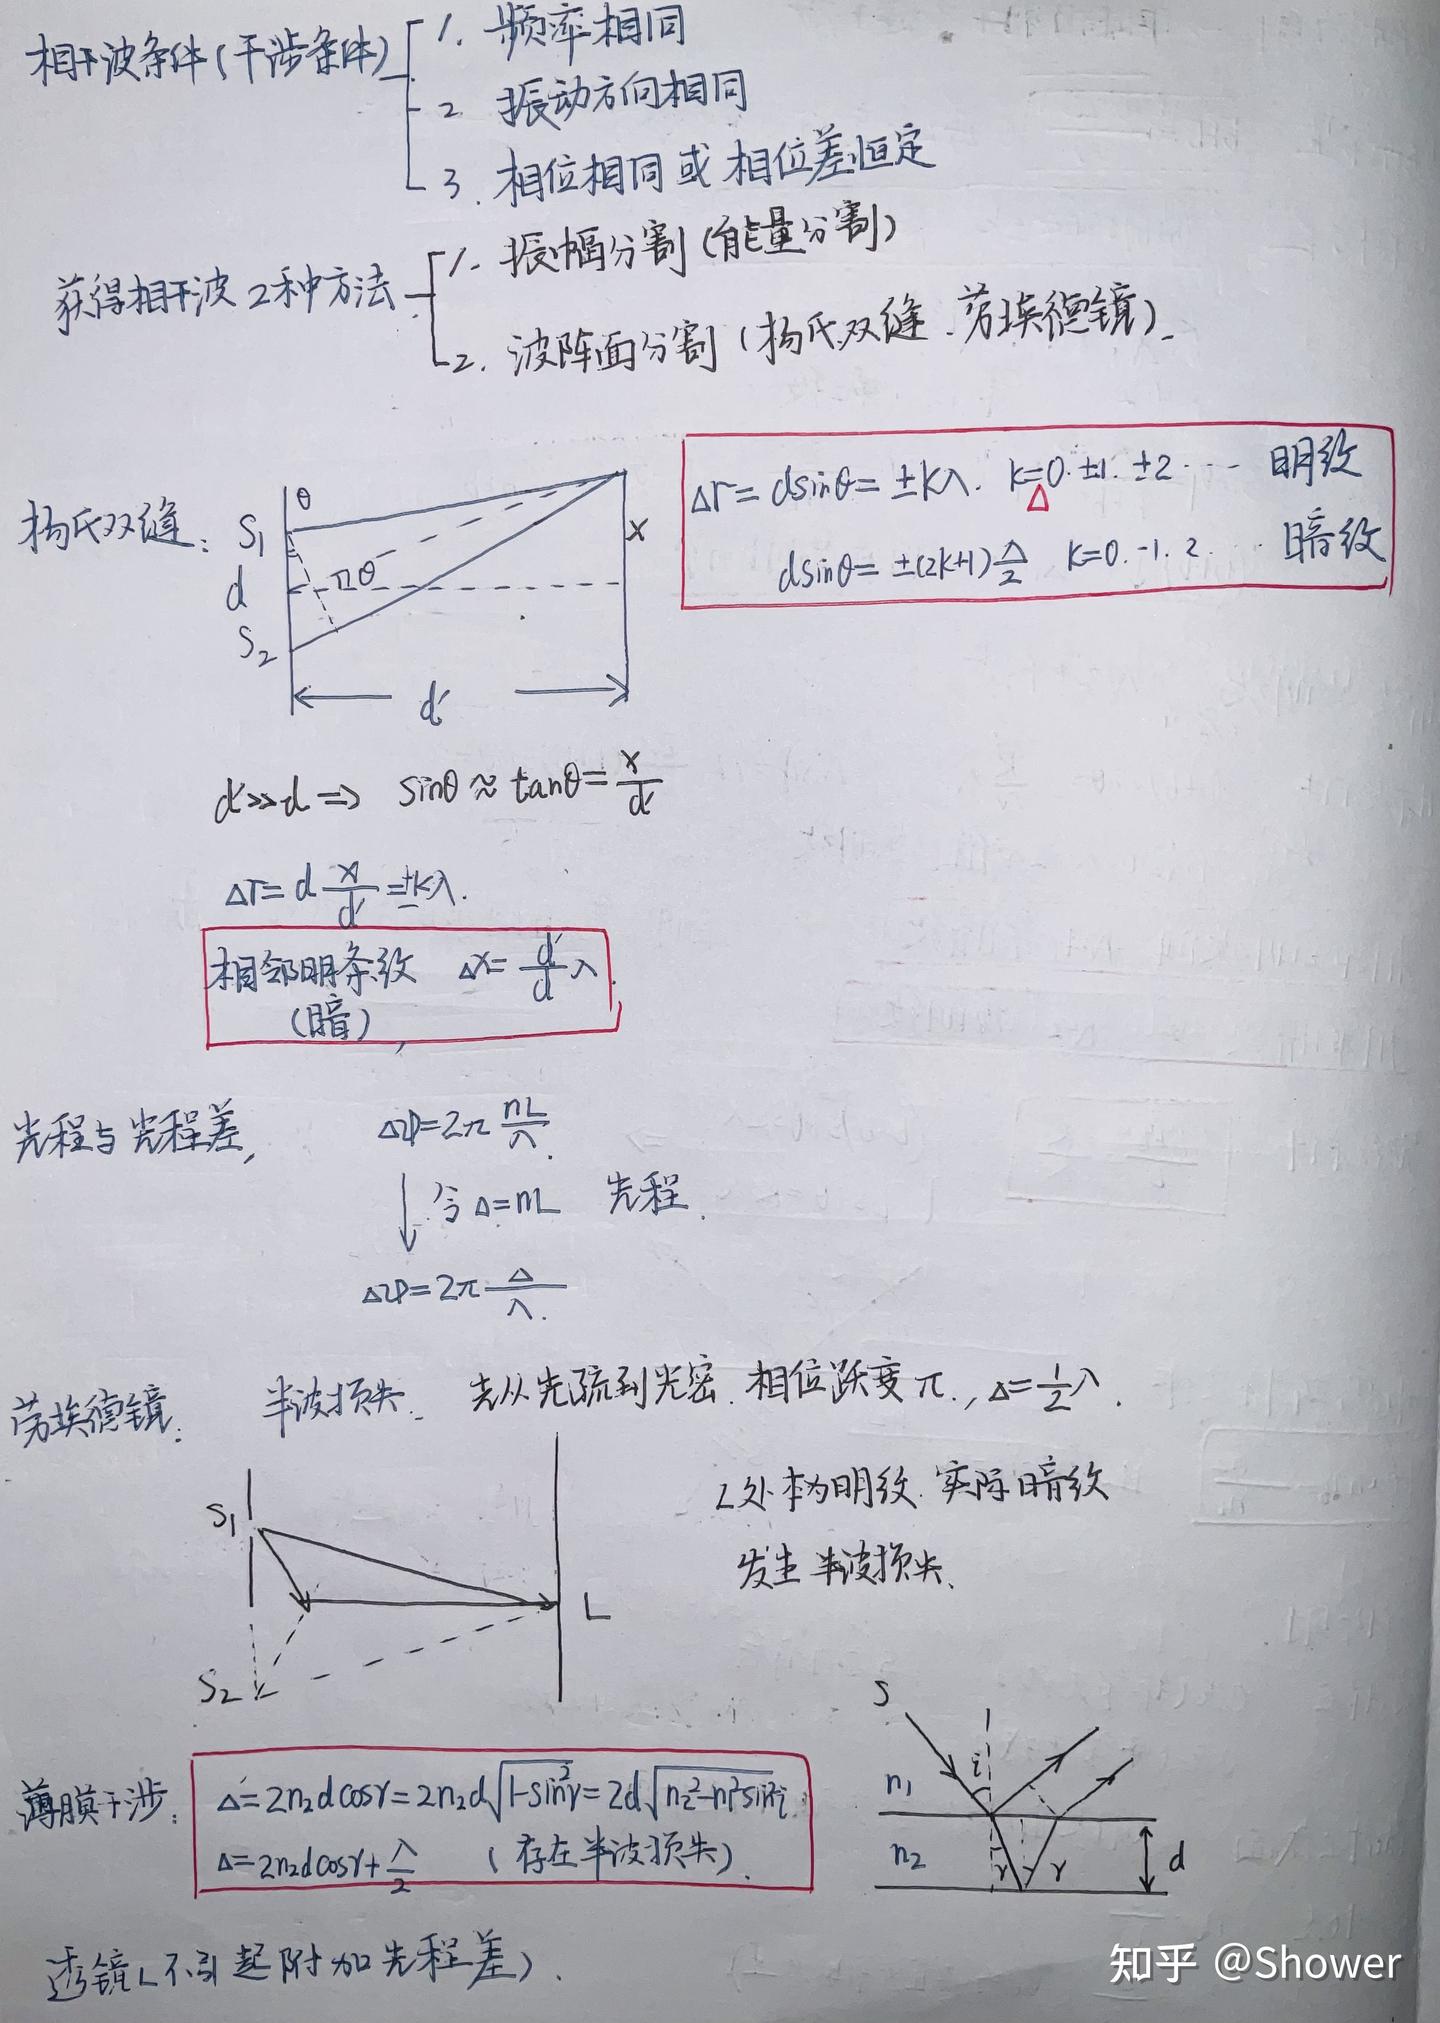 相干波条件(干涉条件)
1. 频率相同
2. 振动方向相同
3. 相位相同或相位差恒定
获得相干波2种方法
1. 振幅分割(能量分割)
2. 波阵面分割(杨氏双缝.劳埃德镜).
杨氏双缝:
θ
S₁
d
S₂
θ
x
d′
Δr=dsinθ=±kλ. k=0.±1.±2.… 明纹
Δ
dsinθ=±(2k+1)λ/2 k=0.-1.2.… 暗纹
d′>>d⇒ sinθ≈tanθ=x/d′
Δr=d x/d′=±kλ.
相邻明条纹 Δx=d′/d λ
(暗)
光程与光程差, Δφ=2π nL/λ.
↓ 令Δ=nL 光程.
Δφ=2π Δ/λ.
劳埃德镜: 半波损失. 光从光疏到光密.相位跃度π., Δ=1/2 λ.
S₁
S₂
L
L处本为明纹.实际暗纹
发生半波损失.
薄膜干涉:
Δ=2n₂dcosγ=2n₂d√(1-sin²γ)=2d√(n₂²-n₁²sin²i)
Δ=2n₂dcosγ+λ/2 (存在半波损失).
S
i
n₁
n₂
γ
γ
d
透镜L不引起附加光程差).
知乎 @Shower